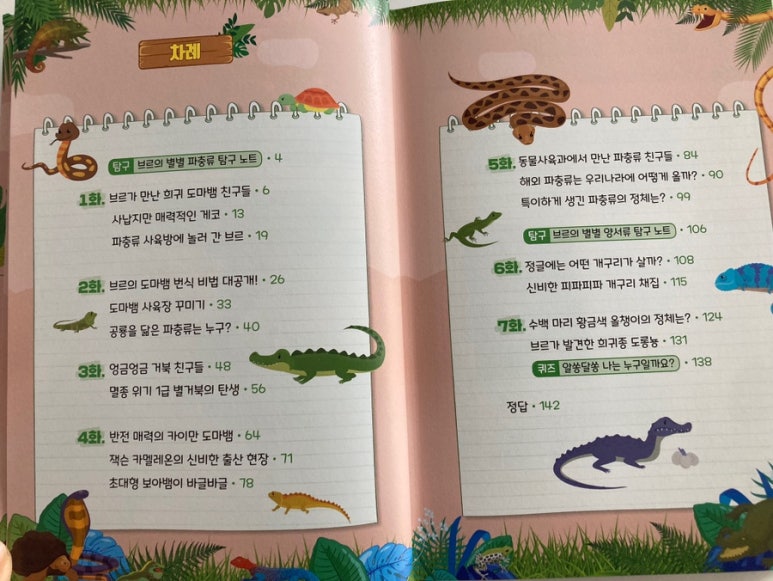 차례
탐구 브르의 별별 파충류 탐구 노트 • 4
1화. 브르가 만난 희귀 도마뱀 친구들 • 6
사납지만 매력적인 게코 • 13
파충류 사육방에 놀러 간 브르 • 19
2화. 브르의 도마뱀 번식 비법 대공개! • 26
도마뱀 사육장 꾸미기 • 33
공룡을 닮은 파충류는 누구? • 40
3화. 엉금엉금 거북 친구들 • 48
멸종 위기 1급 별거북의 탄생 • 56
4화. 반전 매력의 카이만 도마뱀 • 64
잭슨 카멜레온의 신비한 출산 현장 • 71
초대형 보아뱀이 바글바글 • 78
5화. 동물사육과에서 만난 파충류 친구들 • 84
해외 파충류는 우리나라에 어떻게 올까? • 90
특이하게 생긴 파충류의 정체는? • 99
탐구 브르의 별별 양서류 탐구 노트 • 106
6화. 정글에는 어떤 개구리가 살까? • 108
신비한 피파피파 개구리 채집 • 115
7화. 수백 마리 황금색 올챙이의 정체는? • 124
브르가 발견한 희귀종 도롱뇽 • 131
퀴즈 알쏭달쏭 나는 누구일까요? • 138
정답 • 142